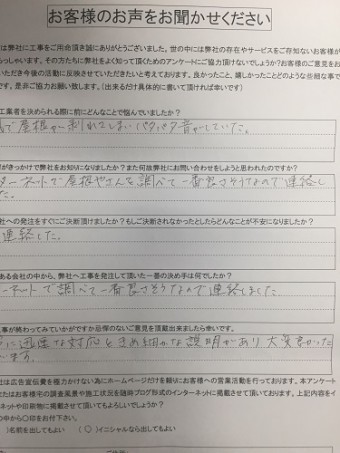 お客様のお声をお聞かせください
は弊社に工事をご用命頂き誠にありがとうございます。世の中には弊社の存在やサービスをご存知ないお客様が
らっしゃいます。その方たちに弊社をよく知って頂くためのアンケートにご協力頂けないでしょうか?お客様のご意見をお
いただき今後の活動に反映させていただきたいと考えております。良かったこと、嬉しかったことどのような些細な事で
す。是非ご協力お願い致します。(出来るだけ具体的に書いて頂ければ幸いです)
工業者を決められる際に前にどんなことで悩んでいましたか?
で屋根が剥れてしまいバタバタ音がしていた。
がきっかけで弊社をお知りになりましたか?また何故弊社にお問い合わせをしようと思われたのですか?
ターネットで屋根やさんを調べて一番良さそうなので連絡し
た。
社への発注をすぐにご決断頂けましたか?もしご決断されなかったとしたらどんなことが不安になりましたか?
連絡した。
ある会社の中から、弊社へ工事を発注して頂いた一番の決め手は何でしたか?
ーネットで調べて一番良さそうなので連絡しました。
工事が終わってみていかがですか忌憚のないご意見を頂戴出来ましたら幸いです。
に迅速な対応ときめ細かな説明があり大変良かった
います。
社は広告宣伝費を極力かけない為にホームページだけを頼りにお客様への営業活動を行っております。本アンケート
またはお客様宅の調査風景や施工状況を随時ブログ形式のインターネットに掲載させて頂いております。上記内容をイ
ネットや印刷物に掲載させて頂いてもよろしいでしょうか?
の中から〇印をお付け下さい。
)名前を出してもよい (〇)イニシャルなら出してもよい